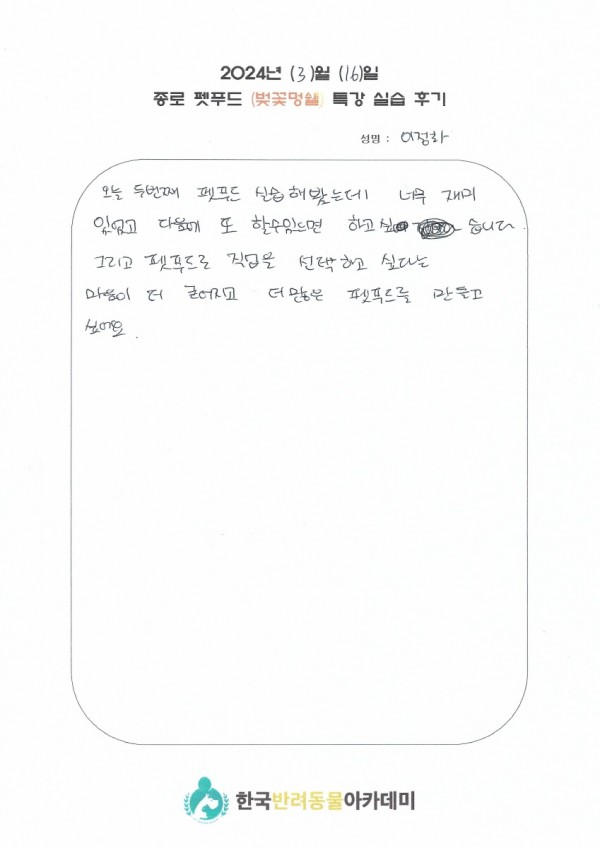 2024년 (3)월 (16)일
종로 펫푸드 (벚꽃멍쉘) 특강 실습 후기
성명 : 이정하
오늘 두번째 펫푸드 실습해봤는데 너무 재미
있었고 다음에 또 할수있으면 하고싶 습니다.
그리고 펫푸드로 직업을 선택하고 싶다는
마음이 더 굳어지고 더 많은 펫푸드를 만들고
싶어요.
한국반려동물아카데미